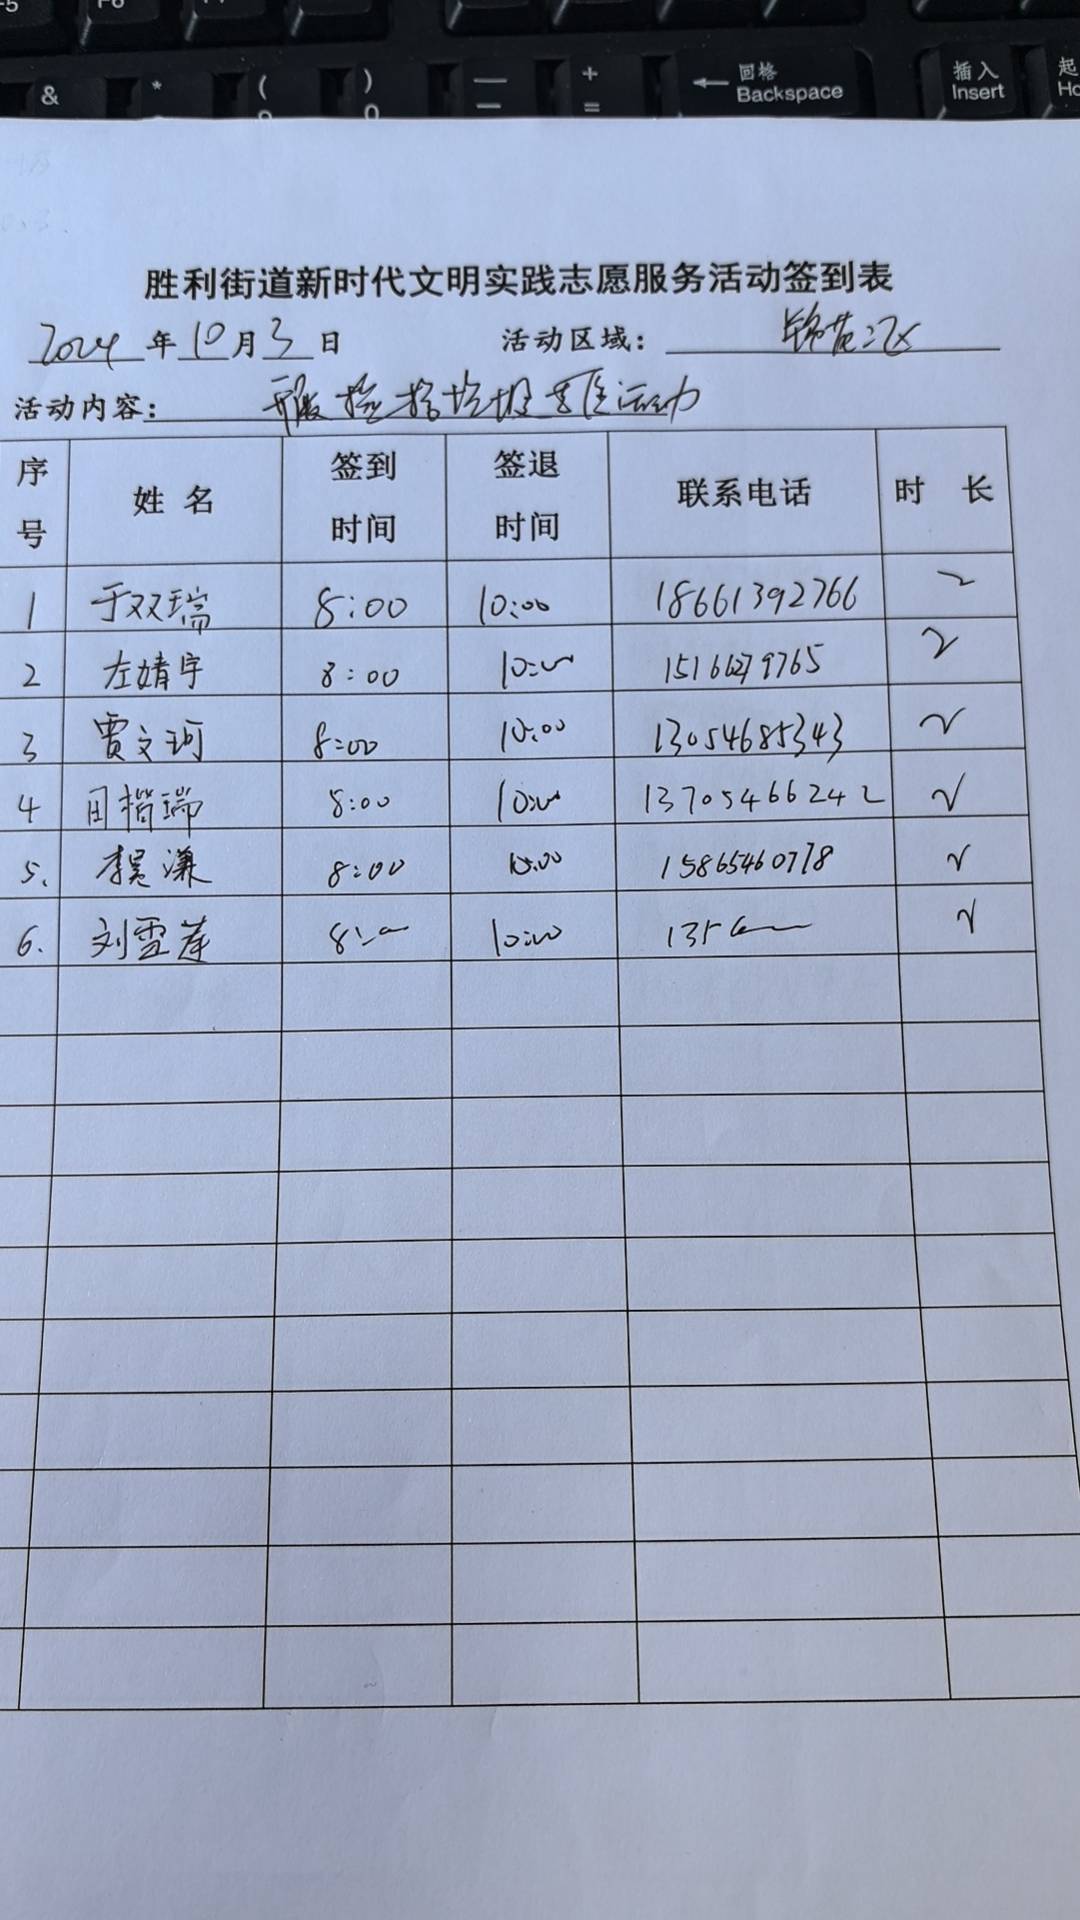 F5 F6
& * ( ) — +
0 — = ← 回格 Backspace 插入 Insert
胜利街道新时代文明实践志愿服务活动签到表
2024 年 10 月 3 日 活动区域： 锦苑二区
活动内容： 开展捡拾垃圾志愿活动
序号 姓名 签到时间 签退时间 联系电话 时长
1 于双瑞 8:00 10:00 18661392766 2
2 左婧宇 8:00 10:00 2
3 贾文珂 8:00 10:00 13054685343 2
4 田 瑞 8:00 10:00 13705466242 2
5. 李昊濂 8:00 10:00 2
6. 刘雪莲 8:00 10:00 2